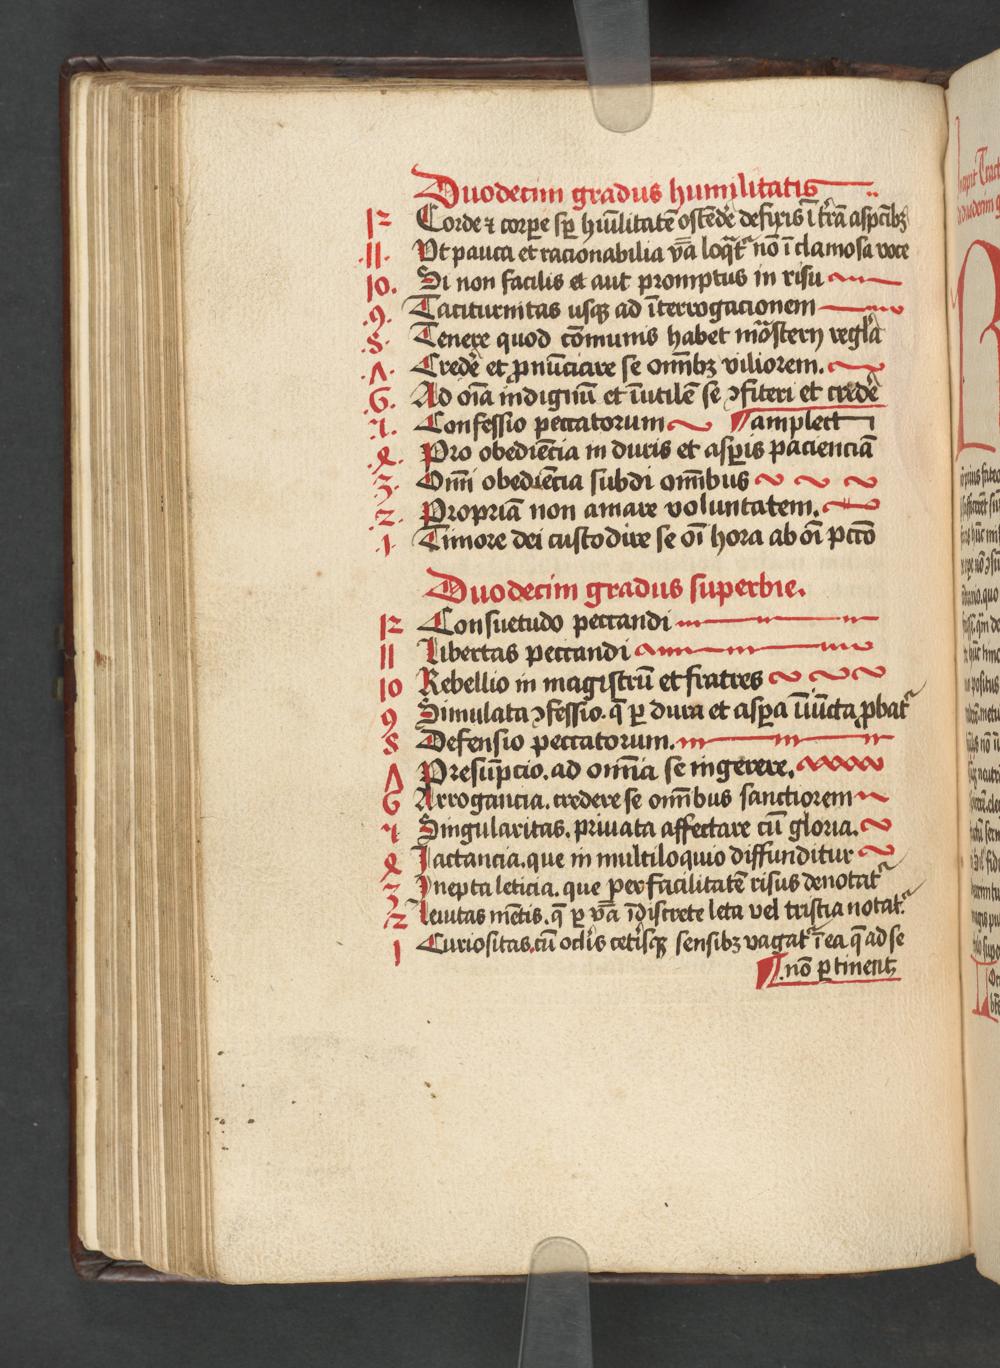 Duodecim gradus humilitatis
12 Corde ⁊ corꝑe sꝑ hūilitatē ostēdē defixis ī t̄rā aspc̄ibꝫ
.11. Vt pauca et racionabilia v̄ba loq̄t᷑ nō ī clamosa voce
10. Si non facilis et aut promptus in risu
.9. Taciturnitas usqꝫ ad īterrogacionem
.8. Tenere quod cōmunis habet mōstery regl̄a
.7. Credē et ꝓnūciare se om̄ibꝫ viliorem.
.6. Ad oīa indignū et īutilē se ꝯfiteri et credē
.5. Confessio peccatorum ¶ amplect
.4. Pro obediēcia in duris et asꝑis pacienciā
.3. Om̄i obediēcia subdi om̄ibus
.2. Propriā non amare voluntatem.
.1. Timore dei custodire se oī hora ab oī pctō
Duodecim gradus superbie.
12 Consuetudo peccandi
11 Libertas peccandi
10 Rebellio in magistrū et fratres
9 Simulata ꝯfessio. q̄ ꝑ dura et asꝑa īiūcta ꝓbat᷑
8 Defensio peccatorum.
7 Presūpcio. ad omīa se ingerere.
6 Arrogancia. credere se om̄ibus sanctiorem
5 Singularitas. priuata affectare cū gloria.
4 Iactancia. que in multiloquio diffunditur
3 Inepta leticia. que per facilitatē risus denotat᷑
2 leuitas mētis. q̄ ꝑ v̄ba īdiscrete leta vel tristia notat᷑.
1 Curiositas. cū oclīs cet̄isqꝫ sensibꝫ vagat᷑ ī ea q̄ ad se
¶ .nō ꝑtinent